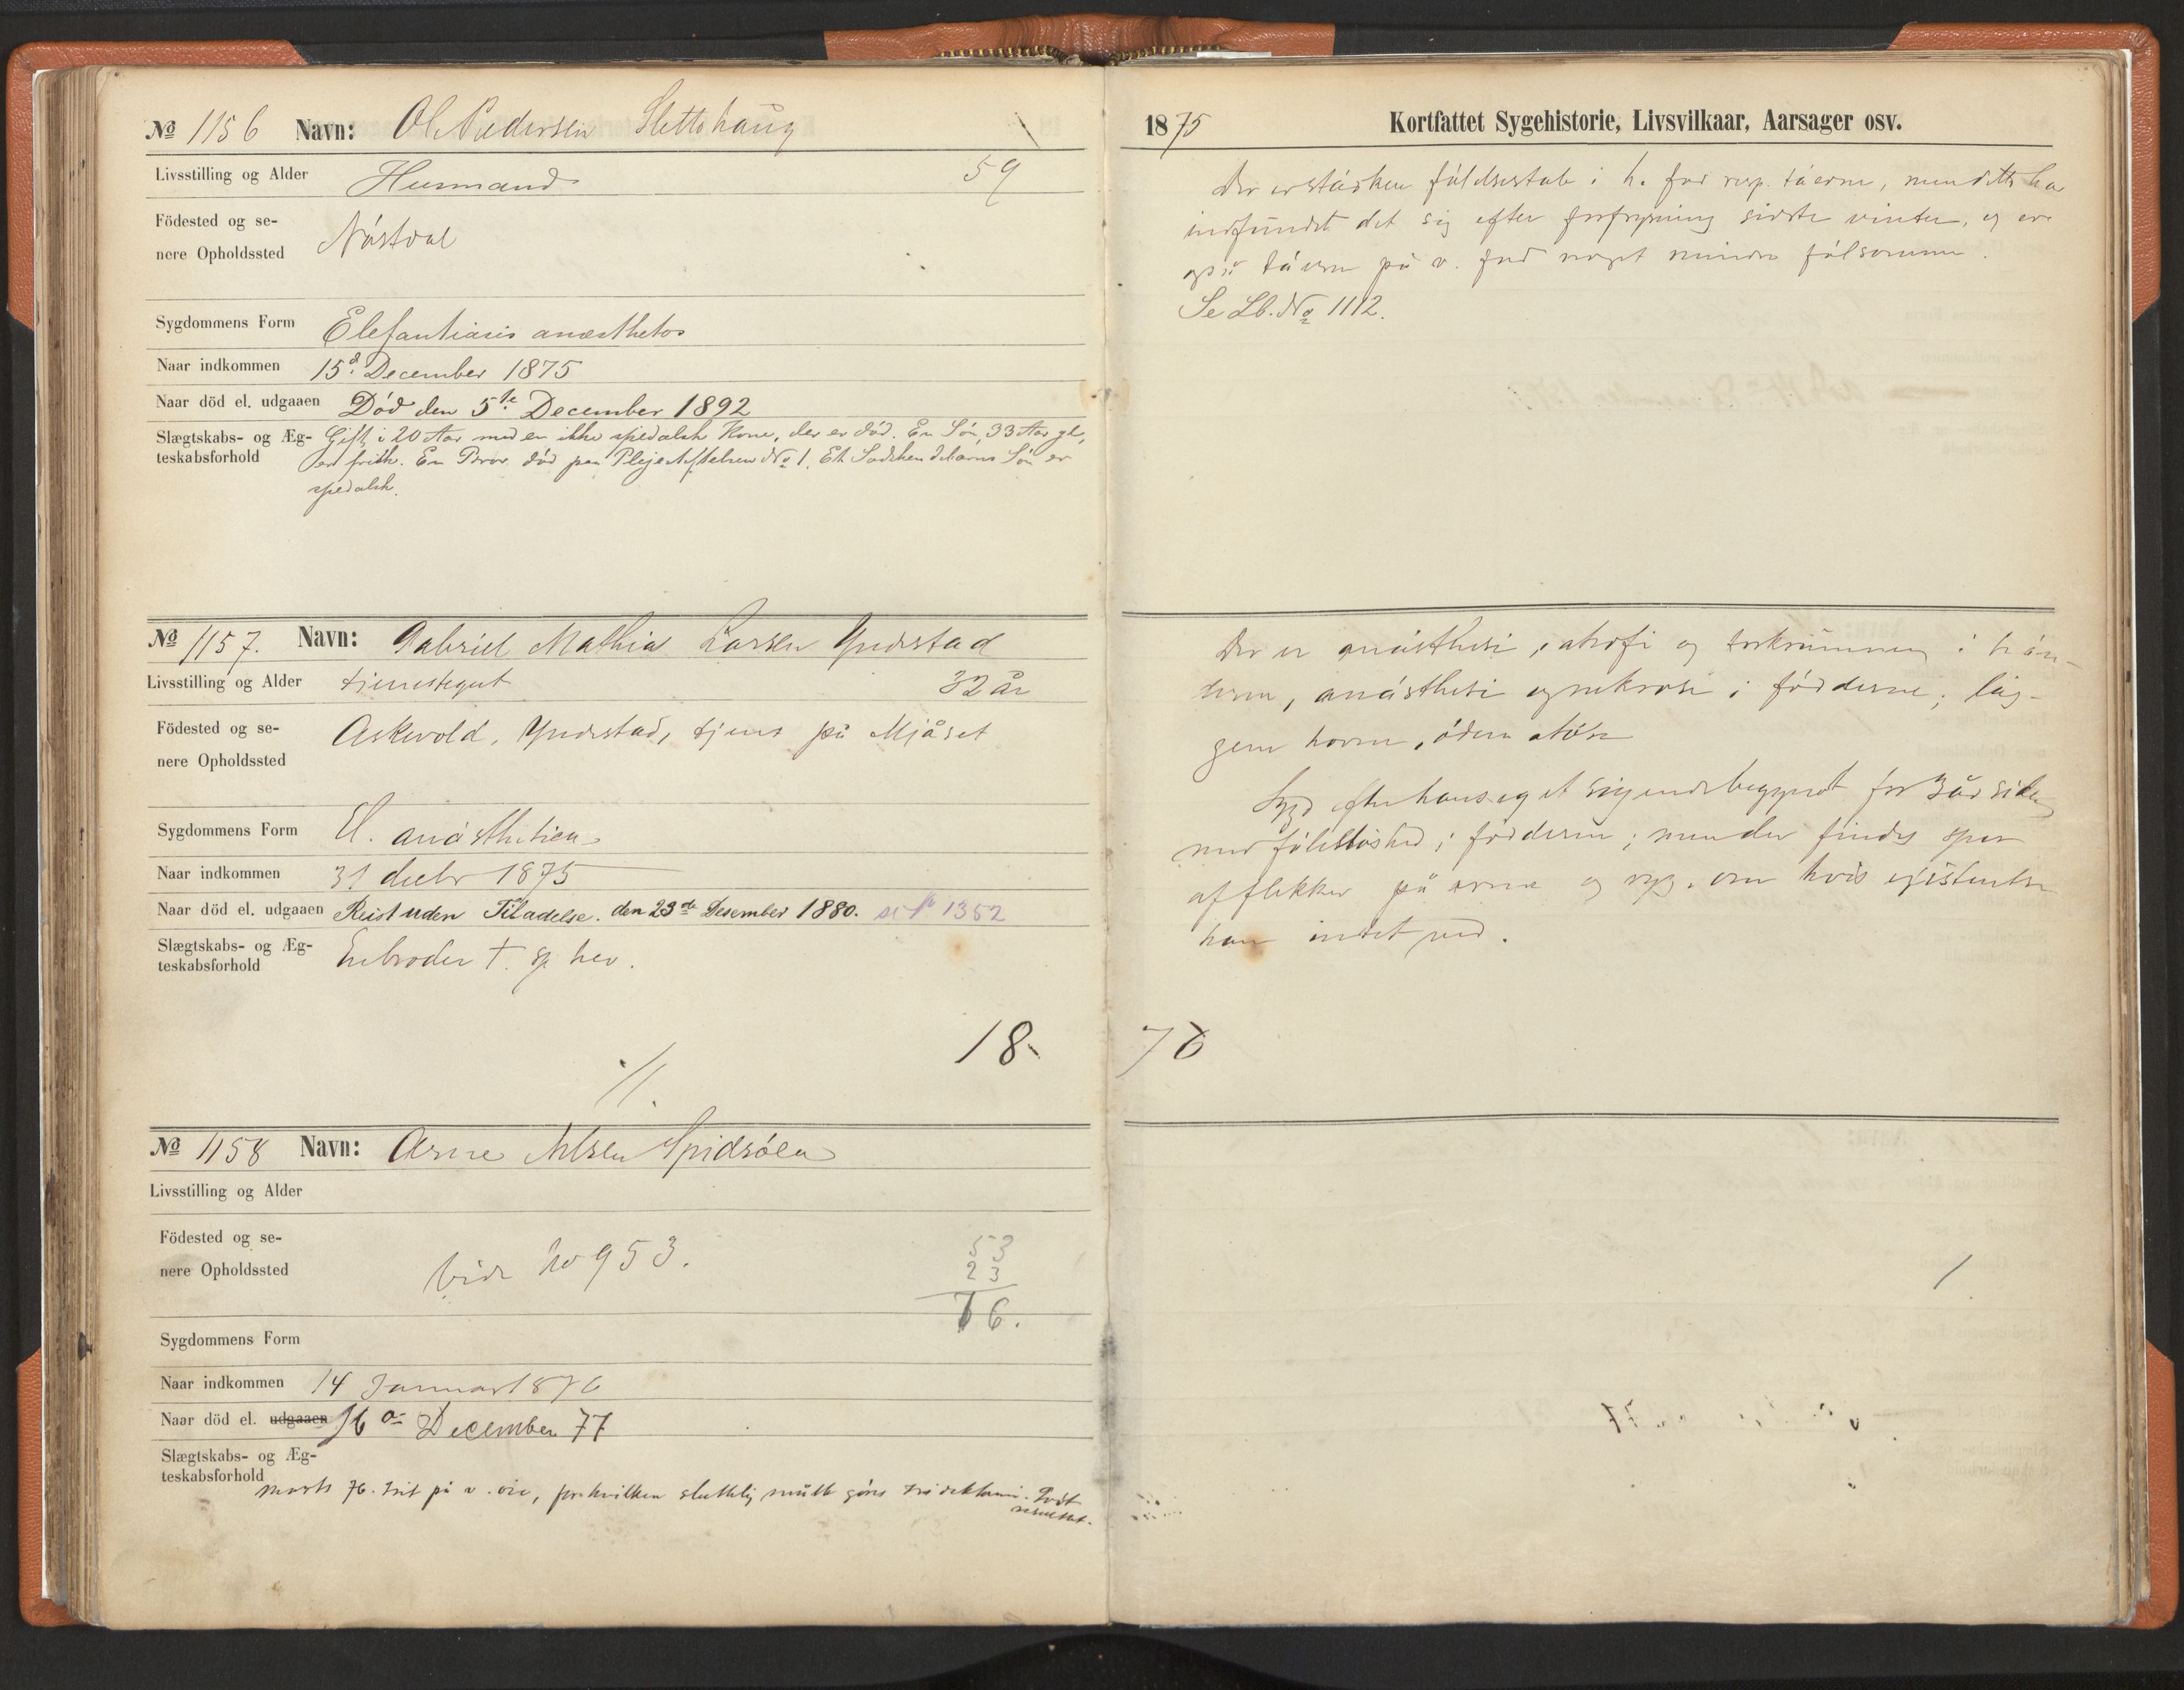 № 1156 Navn: Ol. Pedersen Slettehaug
Livsstilling og Alder Husmand 59
Födested og se-
nere Opholdssted Nástdal
Sygdommens Form Elefantiasis anæsthetos
Naar indkommen 15d. December 1875
Naar död el. udgaaen Död den 5te December 1892
Slægtskabs- og Æg-
teskabsforhold Gift i 20 Aar med en ikke spedalsk Kone, der er död. En Sön, 33 Aar gl,
er frisk. En Bror död paa Pleiestiftelsen No 1. Et Södskendebarns Sön er
spedalsk.
№ 1157. Navn: Gabriel Mathias Larsen Yndestad
Livsstilling og Alder tjenestegut 32 år
Födested og se-
nere Opholdssted Askevold, Yndestad, tjent på Mjåset
Sygdommens Form El. anästhetica
Naar indkommen 31 decbr 1875
Naar död el. udgaaen Reist uden Tiladelse. den 23de Desember 1880. se № 1352
Slægtskabs- og Æg-
teskabsforhold En broder †. sp. her.
18
№ 1158 Navn: Arne Nilsen Spidsöen
Livsstilling og Alder
Födested og se-
nere Opholdssted vide No 953.
53
23
76.
Sygdommens Form
Naar indkommen 14 Januar 1876
Naar död el. udgaaen 16de December 77
Slægtskabs- og Æg-
teskabsforhold
marts 76. irit på v. öie, for hvilken sluttelig måtte göres iridektomi. Godt
resultat.
1875 Kortfattet Sygehistorie, Livsvilkaar, Aarsager osv.
Der er stärken fölelsestab i h. fod resp. tåerne, men dette har
indfundet det sig efter forfrysning sidste vinter, og er
også tåerne på v. fod noget mindre fölsomme.
Se Lb. No 1112.
Der er anästhesi, atrofi og forkrumning i hän-
derne, anästhesi og nekrose i födderne; läg-
gene hovne, ödematöse
Syg efter hans eget sigende begyndt for 3 år siden
med fölelslöshed i födderne; men der findes spor
af flekker på arme og ryg, om hvis existentse
han intet ved.
76